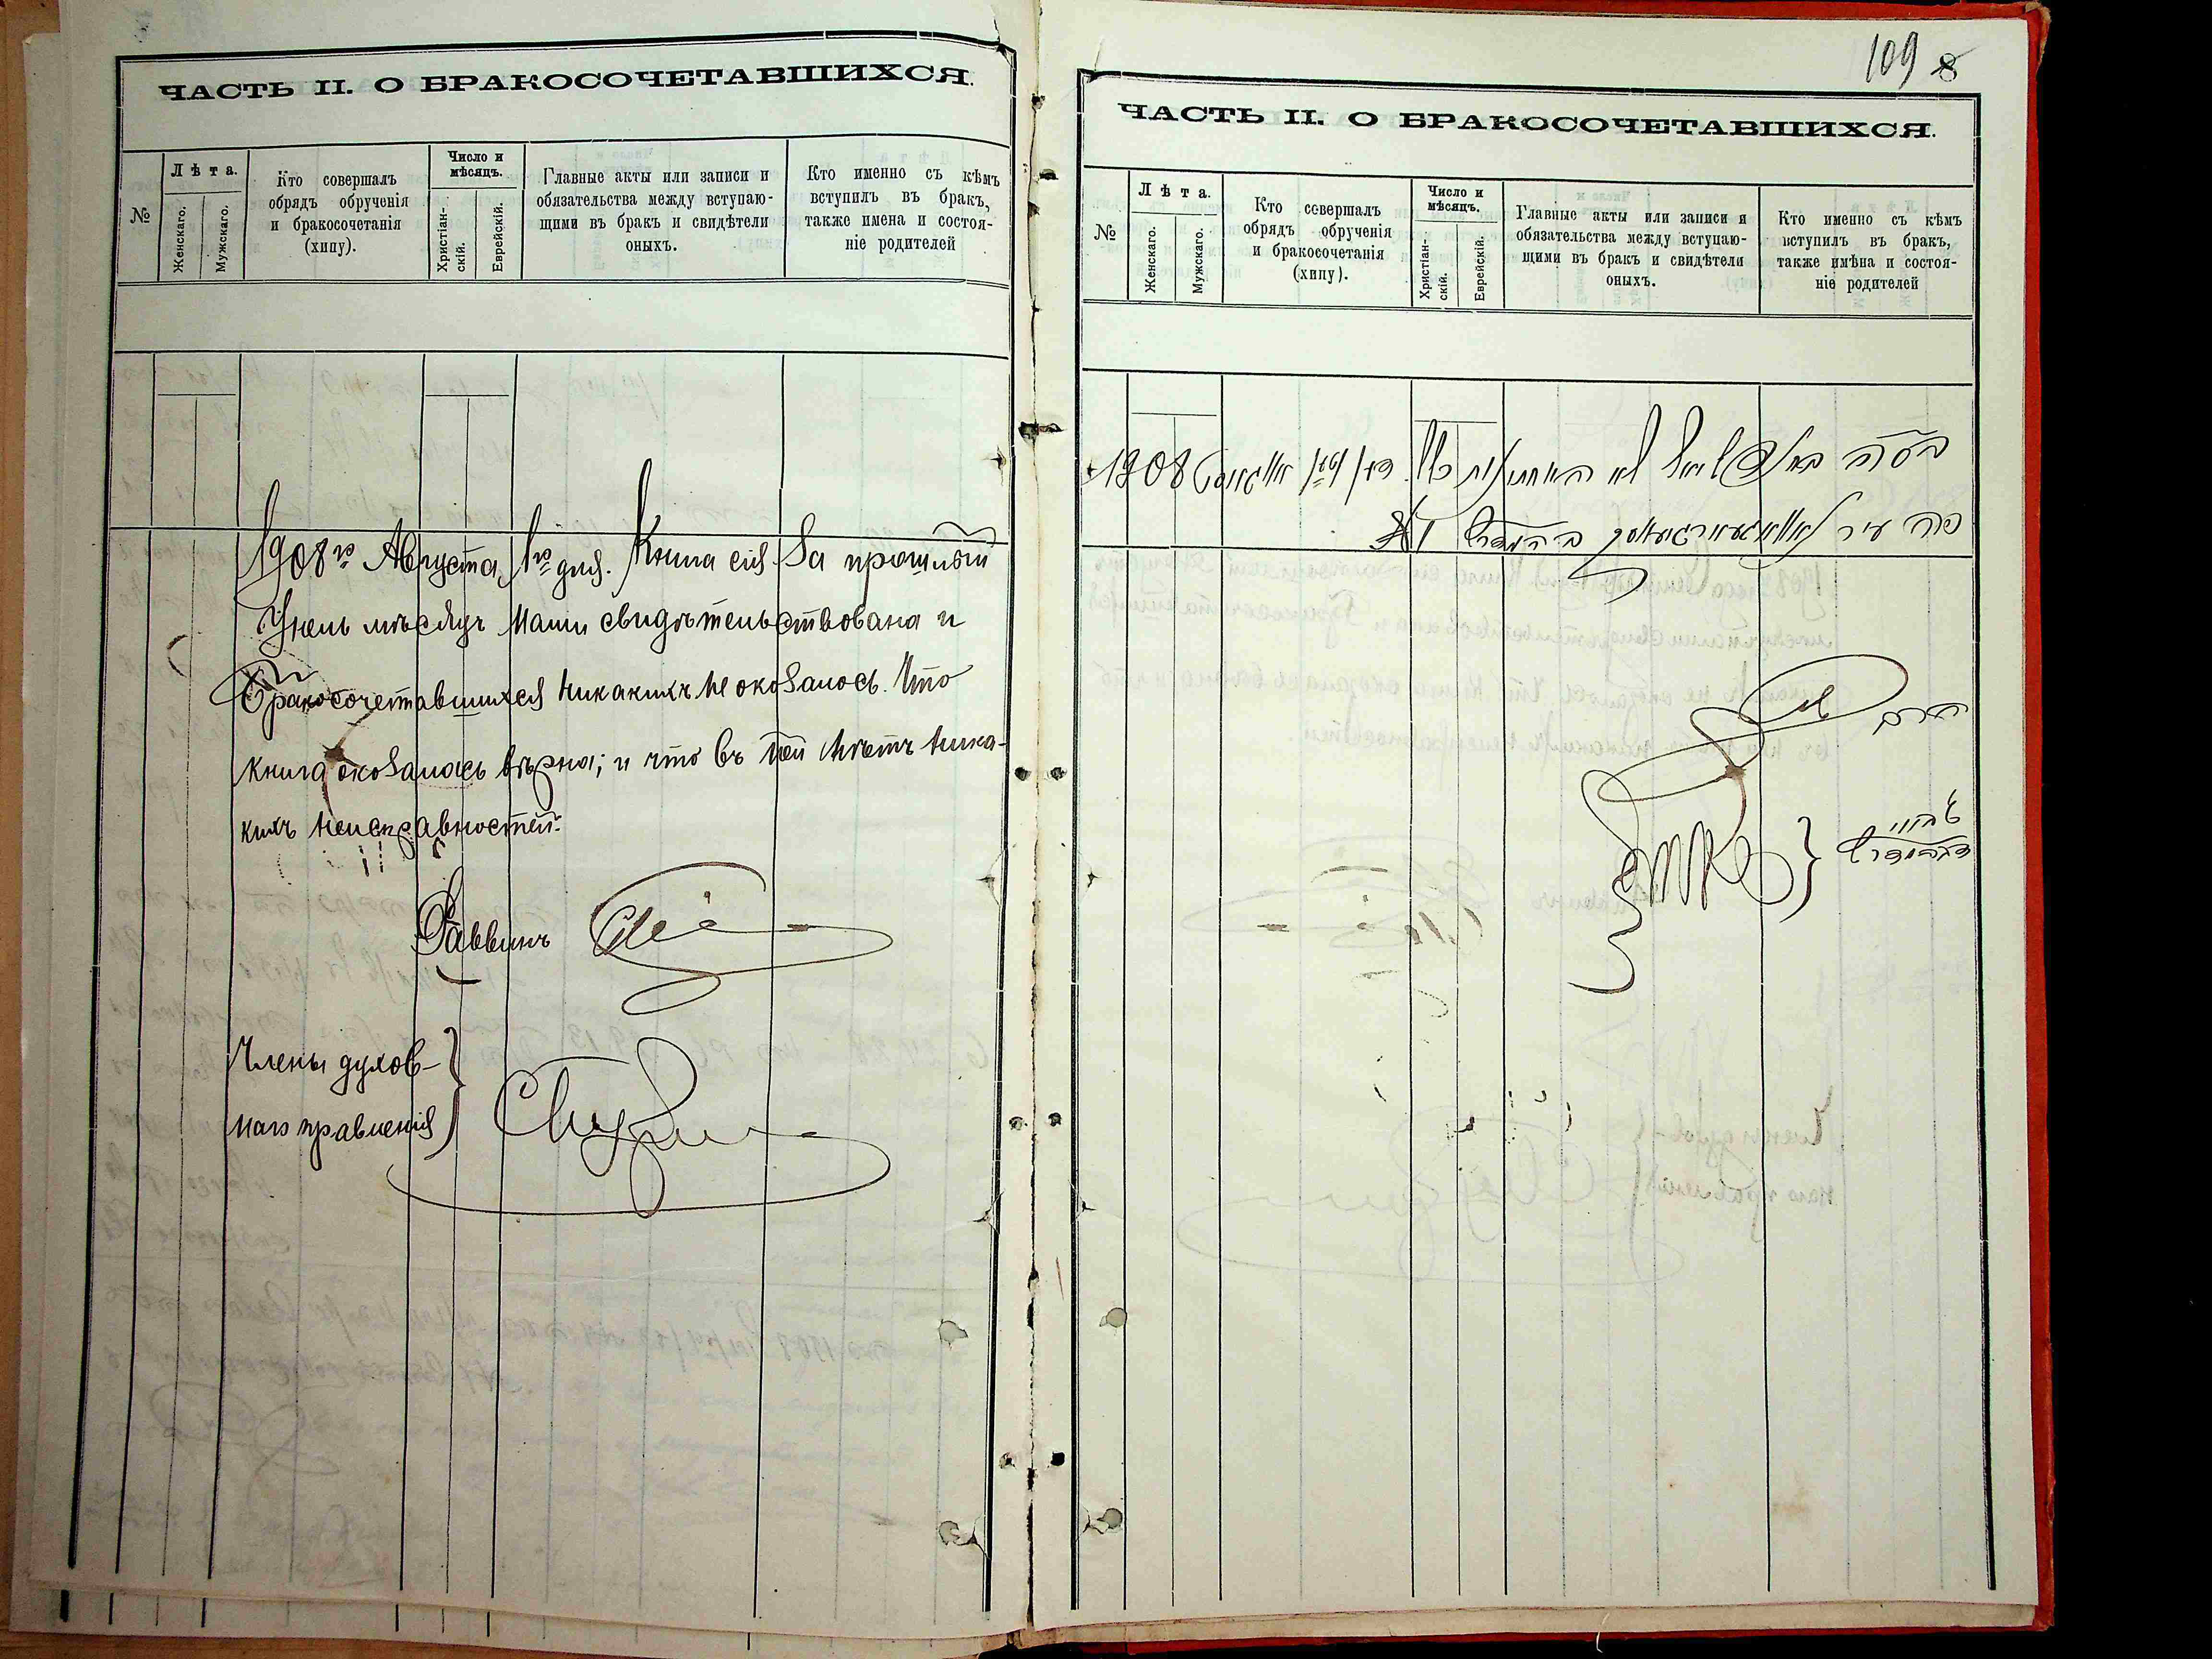 ЧАСТЬ II. О БРАКОСОЧЕТАВШИХСЯ.
№
Лѣта.
Женскаго.
Мужскаго.
Кто совершалъ
обрядъ обрученія
и бракосочетанія
(хипу).
Число и
мѣсяцъ.
Христіан-
скій.
Еврейскій.
Главные акты или записи и
обязательства между вступаю-
щими въ бракъ и свидѣтели
оныхъ.
Кто именно съ кѣмъ
вступилъ въ бракъ,
также имена и состоя-
ніе родителей
1908 го Августа 1го дня. Книга сія за прошлый
Іюль мѣсяцъ нами свидѣтельствована и
Бракосочетавшихся никакихъ не оказалось. Что
книга оказалась вѣрна; и что въ ней нѣтъ ника-
кихъ неисправностей.
Раввинъ
Члены духов-
наго правленія
109 8
ЧАСТЬ II. О БРАКОСОЧЕТАВШИХСЯ.
№
Лѣта.
Женскаго.
Мужскаго.
Кто совершалъ
обрядъ обрученія
и бракосочетанія
(хипу).
Число и
мѣсяцъ.
Христіан-
скій.
Еврейскій.
Главные акты или записи и
обязательства между вступаю-
щими въ бракъ и свидѣтели
оныхъ.
Кто именно съ кѣмъ
вступилъ въ бракъ,
также имѣна и состоя-
ніе родителей
1908
פה עיר
הרב